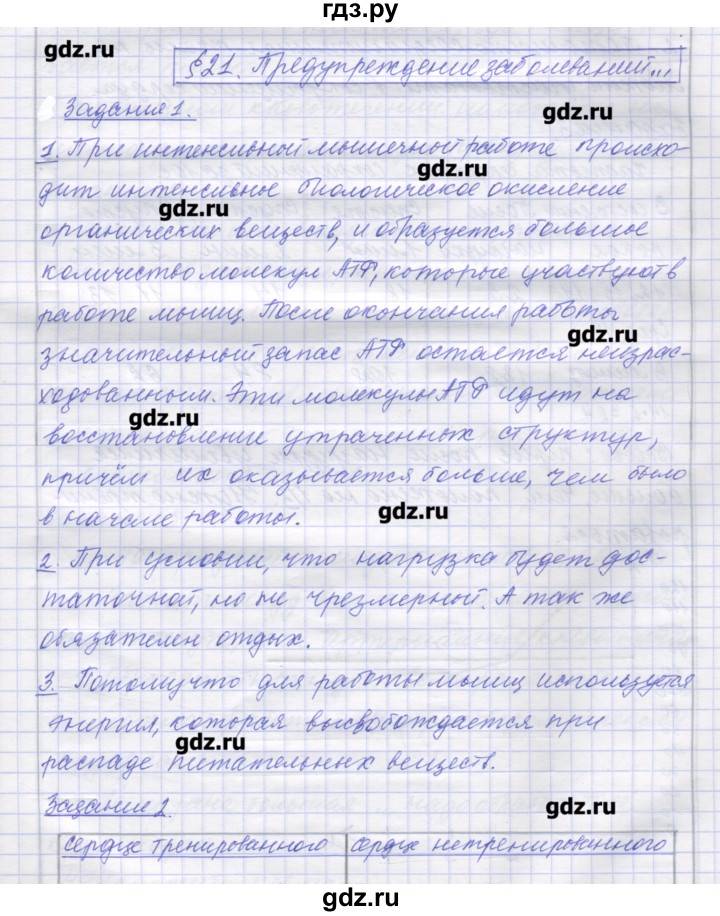 гдз.ру
gdz.ru
§21. Предупреждение заболеваний...
Задание 1.
gdz.ru
1. При интенсивной мышечной работе происхо-
gdz.ru
дит интенсивное биологическое окисление
gdz.ru
органических веществ, и образуется большое
количество молекул АТФ, которые участвуют в
работе мышц. После окончания работы
gdz.ru
значительный запас АТФ остается неизрас-
ходованным. Эти молекулы АТФ идут на
gdz.ru
восстановление утраченных структур,
причём их оказывается больше, чем было
в начале работы.
gdz.ru
2. При условии, что нагрузка будет дос-
таточной, но не чрезмерной. А так же
gdz.ru
обязателен отдых.
3. Потому что для работы мышц используется
энергия, которая высвобождается при
gdz.ru
распаде питательных веществ.
Задание 2.
gdz.ru
сердце тренированного
сердце нетренированного
gdz.ru